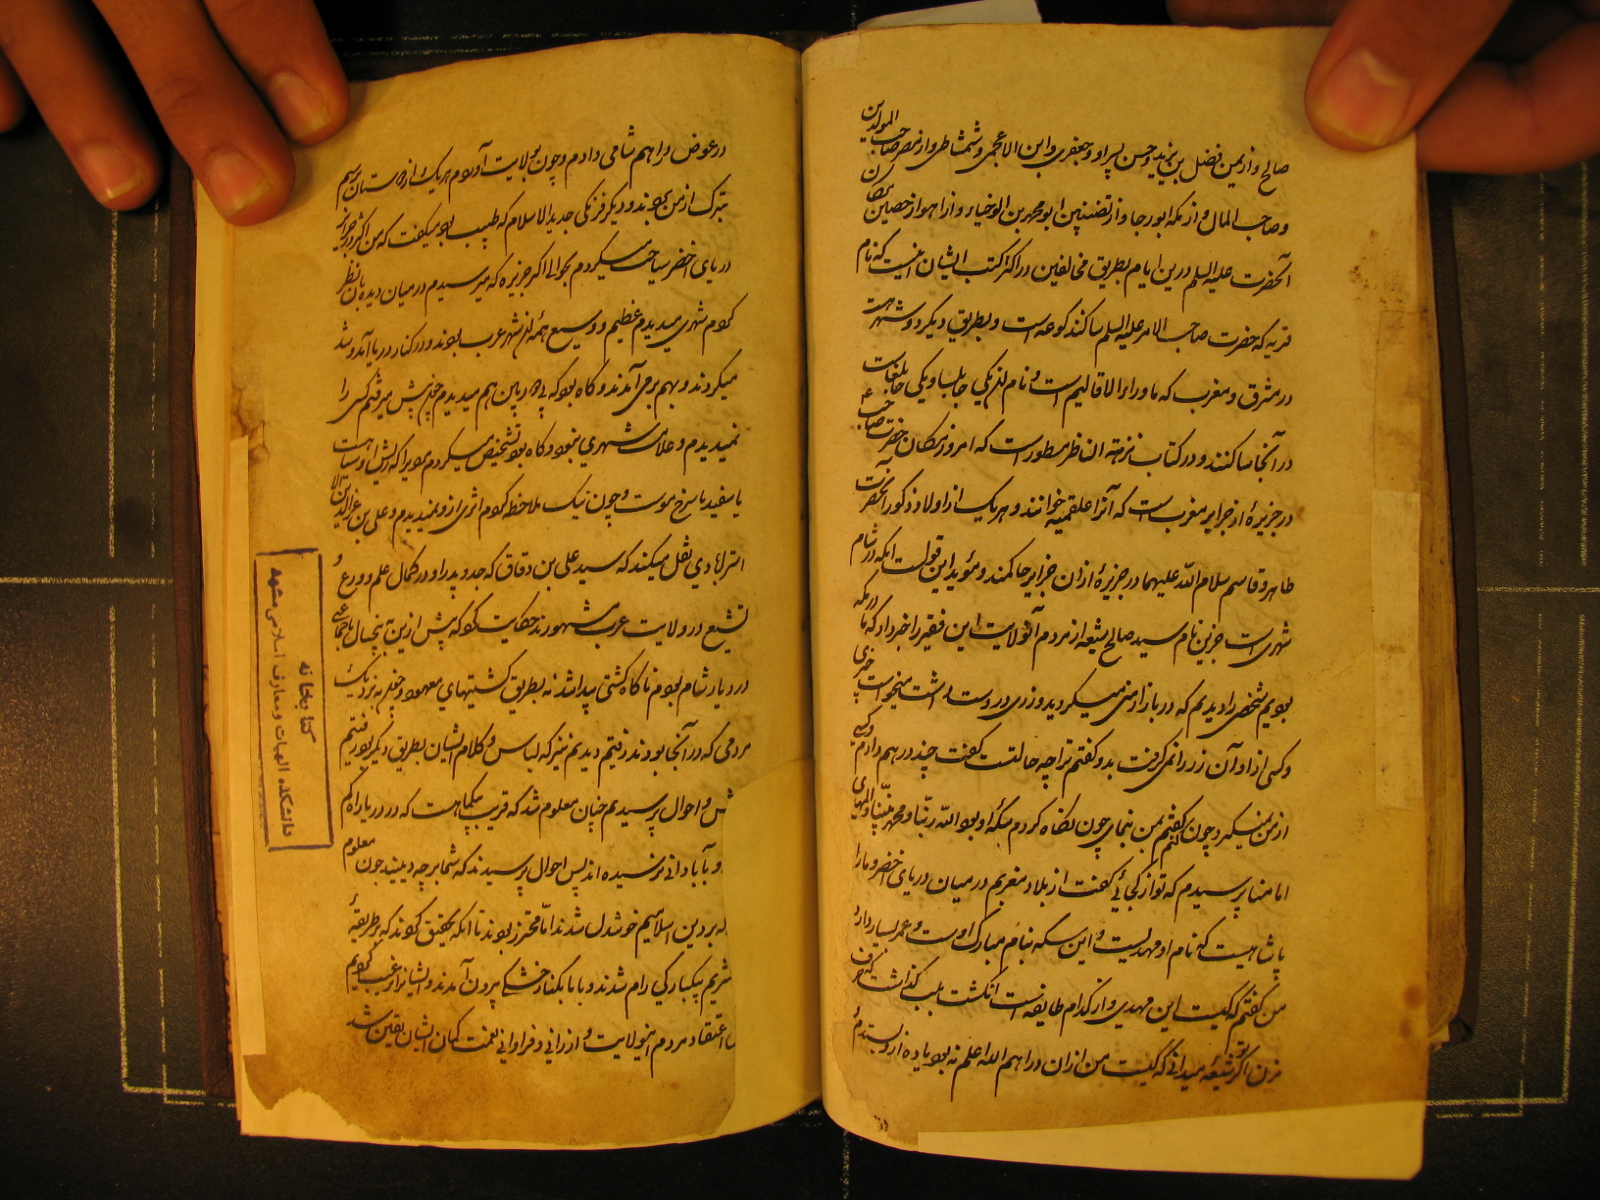 صالح و از یمن فضل بن یزید و حسن پسر او و جعفری و ابن الاعجمی و شمشاطی و از مصر صاحب المولدین
و صاحب المال و از مکه ابو رجا و از نصیبین ابو محمد بن الوجناء و از اهواز حصین
آنحضرت علیه السلم درین ایام بطریق مخالفین در اکثر کتب ایشان اینست که نام
قریه که حضرت صاحب الامر علیه السلم ساکنند کرعه است و بطریق دیگر دو شهرست
در مشرق و مغرب که ماوراء الاقالیم است و نام ان یکی جابلسا و یکی جابلقاست
در آنجا ساکنند و در کتاب نزهة الناظر مسطور است که امروز مکان حضرت صاحب
در جزیرهٔ از جزایر مغرب است که آنرا علقمیه خوانند و هر یک از اولاد ذکور آنحضرت
طاهر و قاسم سلام الله علیهما در جزیرهٔ از ان جزایر حاکمند و مؤید این قولست انکه در شام
شهری است جزین نام سید صالح شیعه از مردم آنولایت این فقیر را خبر داد که ما در مکه
بودیم شخصی را دیدیم که در بازار منی میگردید و زری در دست داشت میخواست چیزی
و کسی از او آن زر را نمی گرفت بدو گفتم ترا چه حالتست گفت چند درهم دارم و کسی
از من نمیگیرد چون گفتم بمن بنمای چون نگاه کردم سکه او بود الله ربنا و محمد نبینا و المهدی
امامنا پرسیدم که تو از کجائی گفت از بلاد مغربم در میان دریای اخضر و ما را
پادشاهیست که نام او مهدیست و این سکه بنام مبارک اوست و عمر بسیار دارد
من گفتم که کیست این مهدی و از کدام طایفه است انگشت بلب گذاشت که حرف
مزن اگر تو شیعهٔ میدانی که کیست من از ان دراهم الله اعلم نه بود یا ده ازو بستدم
در عوض دراهم شامی دادم و چون بولایت آوردم هر یک از دوستان برسم
تبرک از من بردند و دیگر فرنگی جدید الاسلام که طبیب بود میگفت که من اکثر در جزایر
دریای اخضر سیاحت میکردم بحوالی اکثر جزیره که میرسیدم در میان دیده بان نظر
کردم شهری میدیدم عظیم و وسیع همه ان شهر عرب بودند و در کنار دریا آمد و شد
میکردند و بهم برمی آمدند و گاه بود که پیر پاین هم میدیدم چون پیش میرفتم کسی را
نمیدیدم و علامت شهری نبود و گاه بود تشخیص میکردم مویرا که ریش او سیاهست
یا سفید یا سرخ موست و چون نیک ملاحظه کردم اثری از و نمیدیدم و علی بن عزالدین
استرابادی نقل میکند که سید علی بن دقاق که جد و پدر او در کمال علم و ورع و
تشیع در ولایت عرب مشهورند حکایت کرد که پیش ازین به پنجسال با جماعتی
در دیار شام بودم ناگاه کشتی پیدا شد نه بطریق کشتیهای معهود و چون به نزدیک
مردمی که در آنجا بودند رفتیم دیدیم نیز که لباس و کلام ایشان بطریق دیگر بود رفتیم
ش و احوال پرسیدیم چنان معلوم شد که قریب یکماهست که در دریا راه گم
و بآبادانی نرسیده اند پس احوال پرسیدند که شما بر چه دینید چون معلوم
که بر دین اسلامیم خوشدل شدند اما محترز بودند تا انکه تحقیق کردند که بر طریقهٔ
شریم یکبارگی رام شدند و با ما بکنار خشکی بیرون آمدند و ایشانرا ترغیب کردیم
اعتقاد مردم اینولایت و ارزانی و فراوانی نعمت گمان ایشان یقین شد
کتابخانه
دانشکده الهیات و معارف اسلامی مشهد